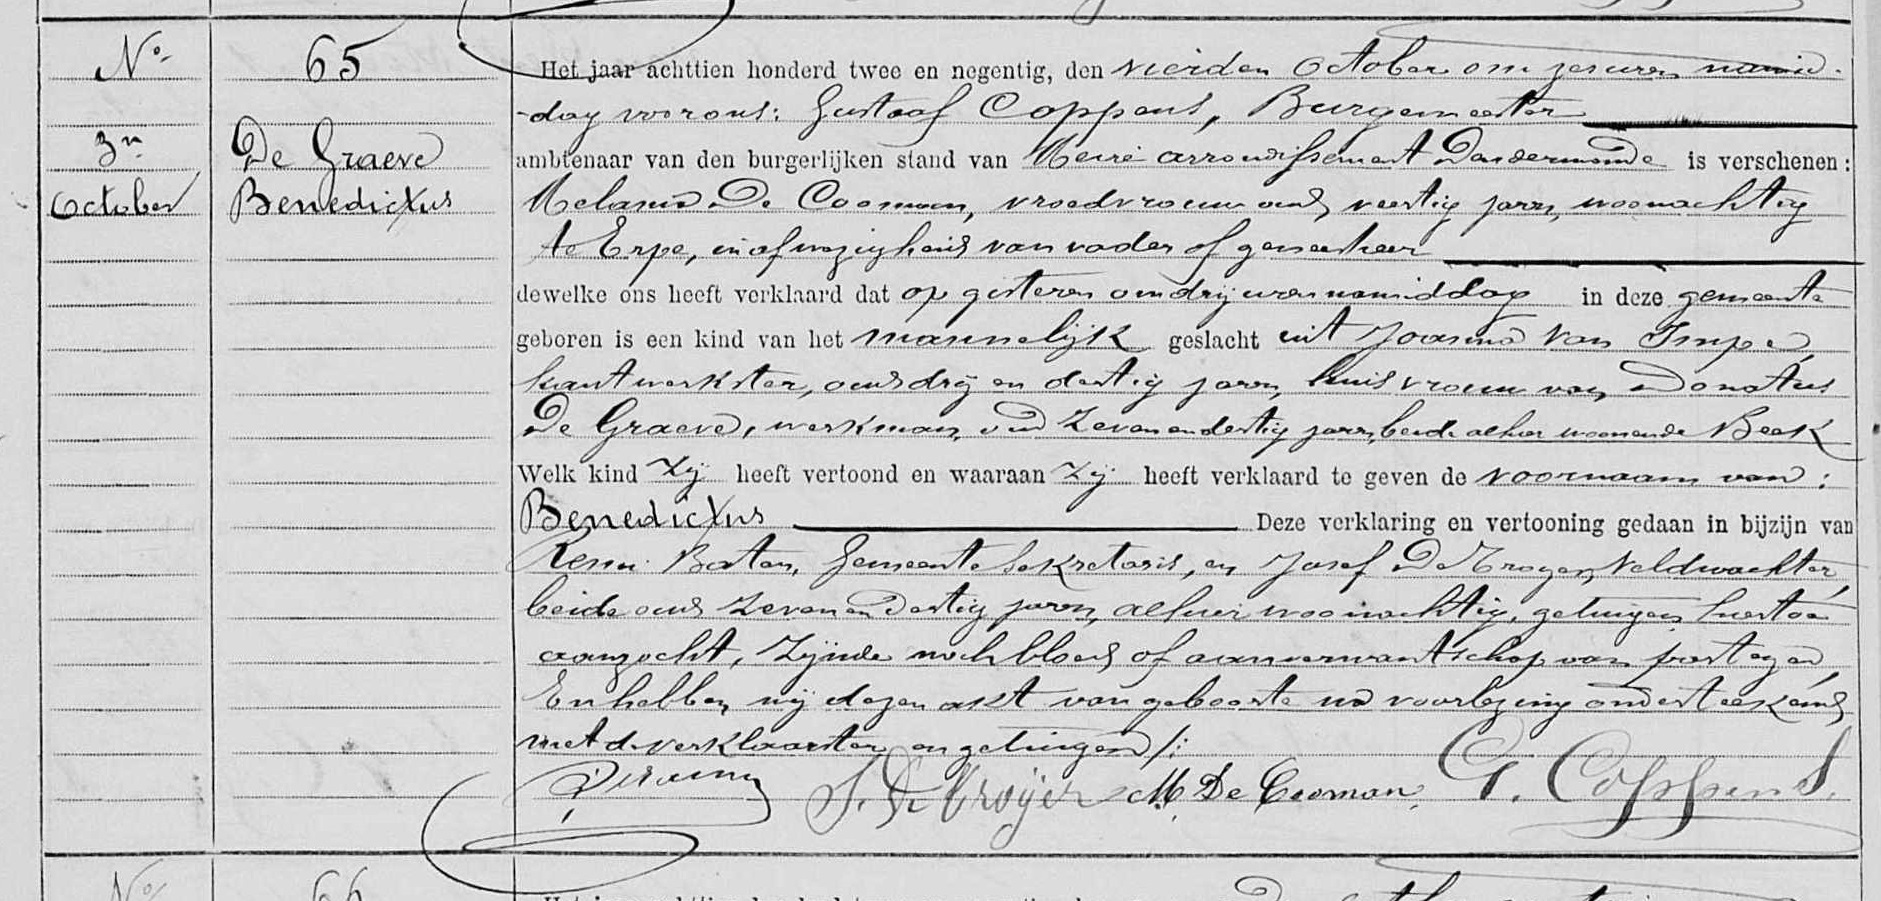 No. 65
Het jaar achttien honderd twee en negentig, den vierden October om zes uren namid-
3n De Graeve -dag voor ons: Gustaaf Coppens, Burgemeester
October Benedictus ambtenaar van den burgerlijken stand van Meire arrondissement Dendermonde is verschenen:
Melania De Cooman, vroedvrouw oud veertig jaren, woonachtig
te Erpe, in afwezigheid van vader of geneesheer
dewelke ons heeft verklaard dat op gisteren om drij uren namiddag in deze gemeente
geboren is een kind van het mannelijk geslacht uit Joanna Van Impe,
kantwerkster, oud drij en dertig jaren, huisvrouw van Donatus
De Graeve, werkman, oud zeven en dertig jaren, beide alhier woonende Beek
Welk kind zij heeft vertoond en waaraan zij heeft verklaard te geven de voornaam van:
Benedictus Deze verklaring en vertooning gedaan in bijzijn van
Remi Baten, Gemeente Sekretaris, en Josef De Troyer, Veldwachter,
beide oud zeven en dertig jaren, alhier woonachtig, getuigen hiertoe
aangezocht, zijnde noch bloed of aanverwantschap van partijen,
En hebben wij dezen akt van geboorte na voorlezing onderteekend
met de verklaarster en getuigen /:
J. De Troÿer M. De Cooman. G. Coppens.
No 66